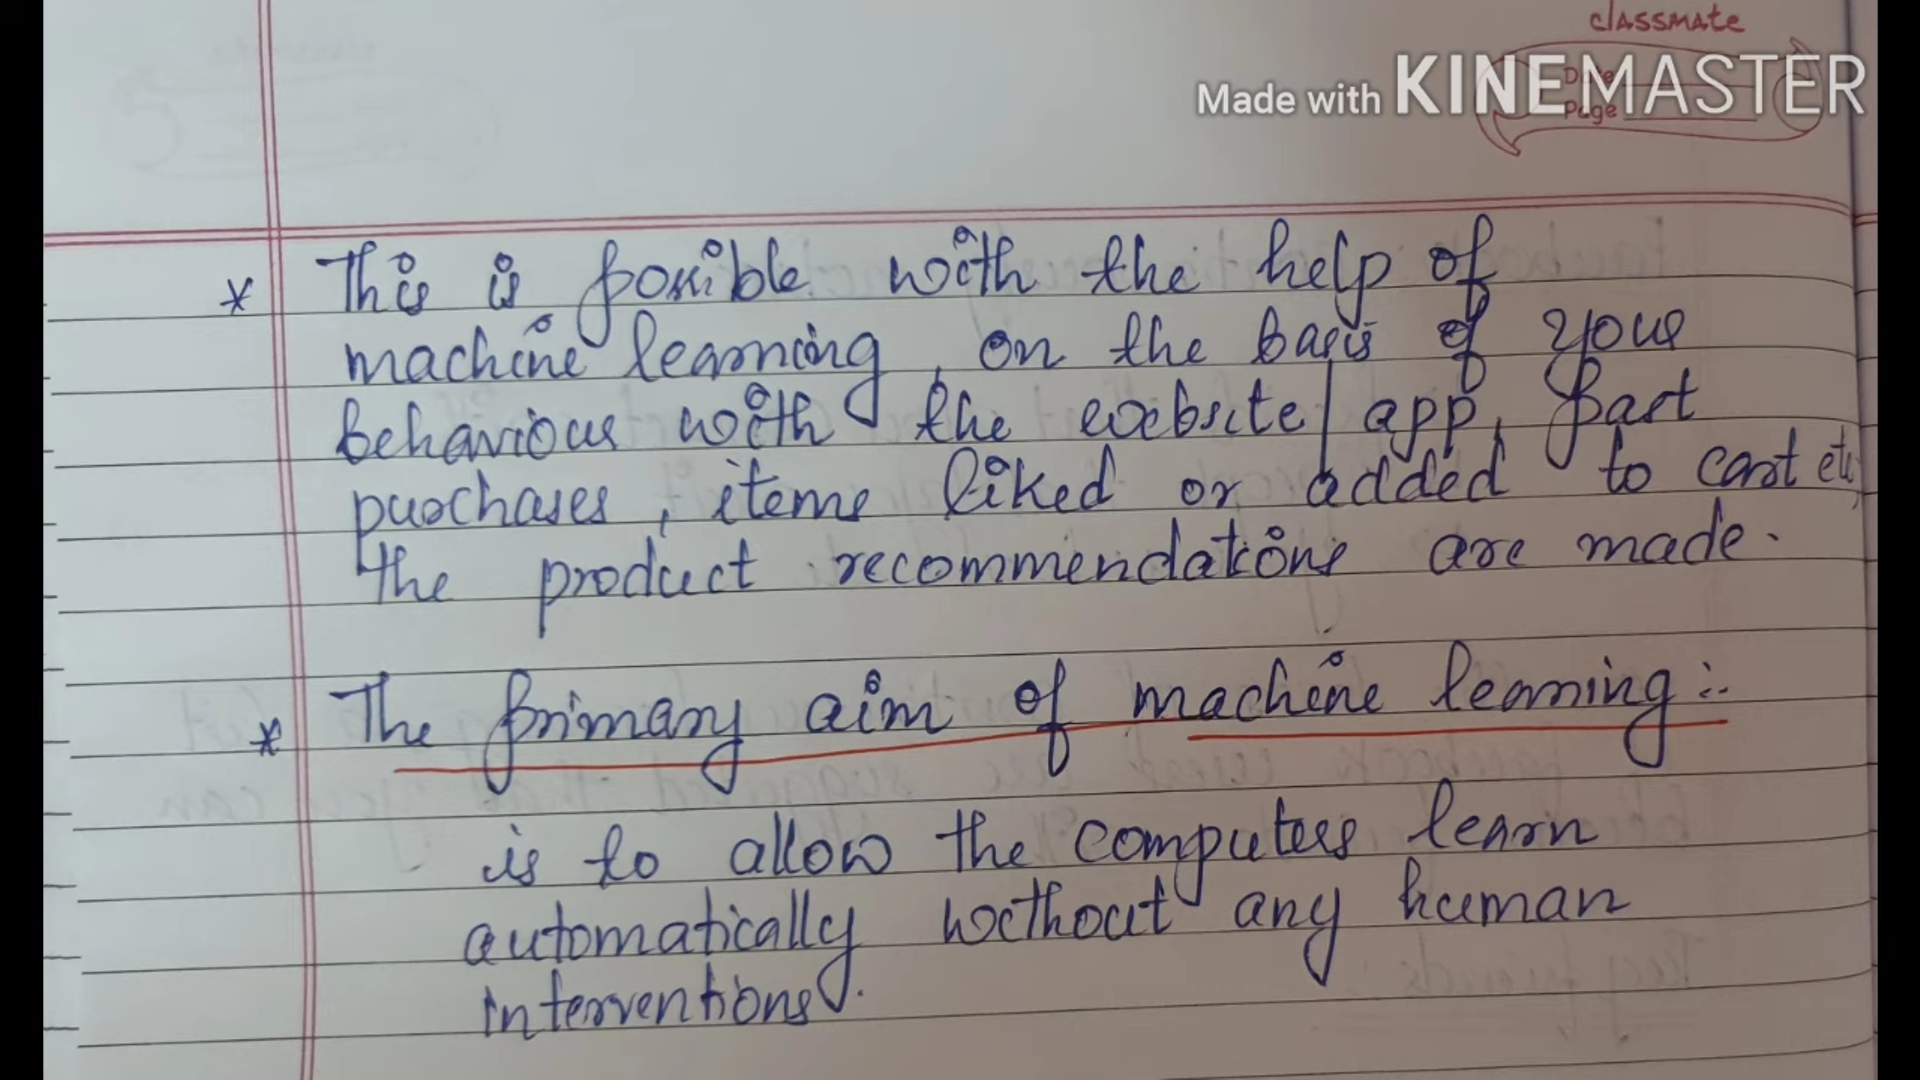 classmate
Date
Page
Made with KINEMASTER
* This is possible with the help of
machine learning, on the basis of your
behaviour with the website/app, past
purchases, items liked or added to cart etc,
the product recommendations are made.
* The primary aim of machine learning :-
is to allow the computers learn
automatically without any human
interventions.